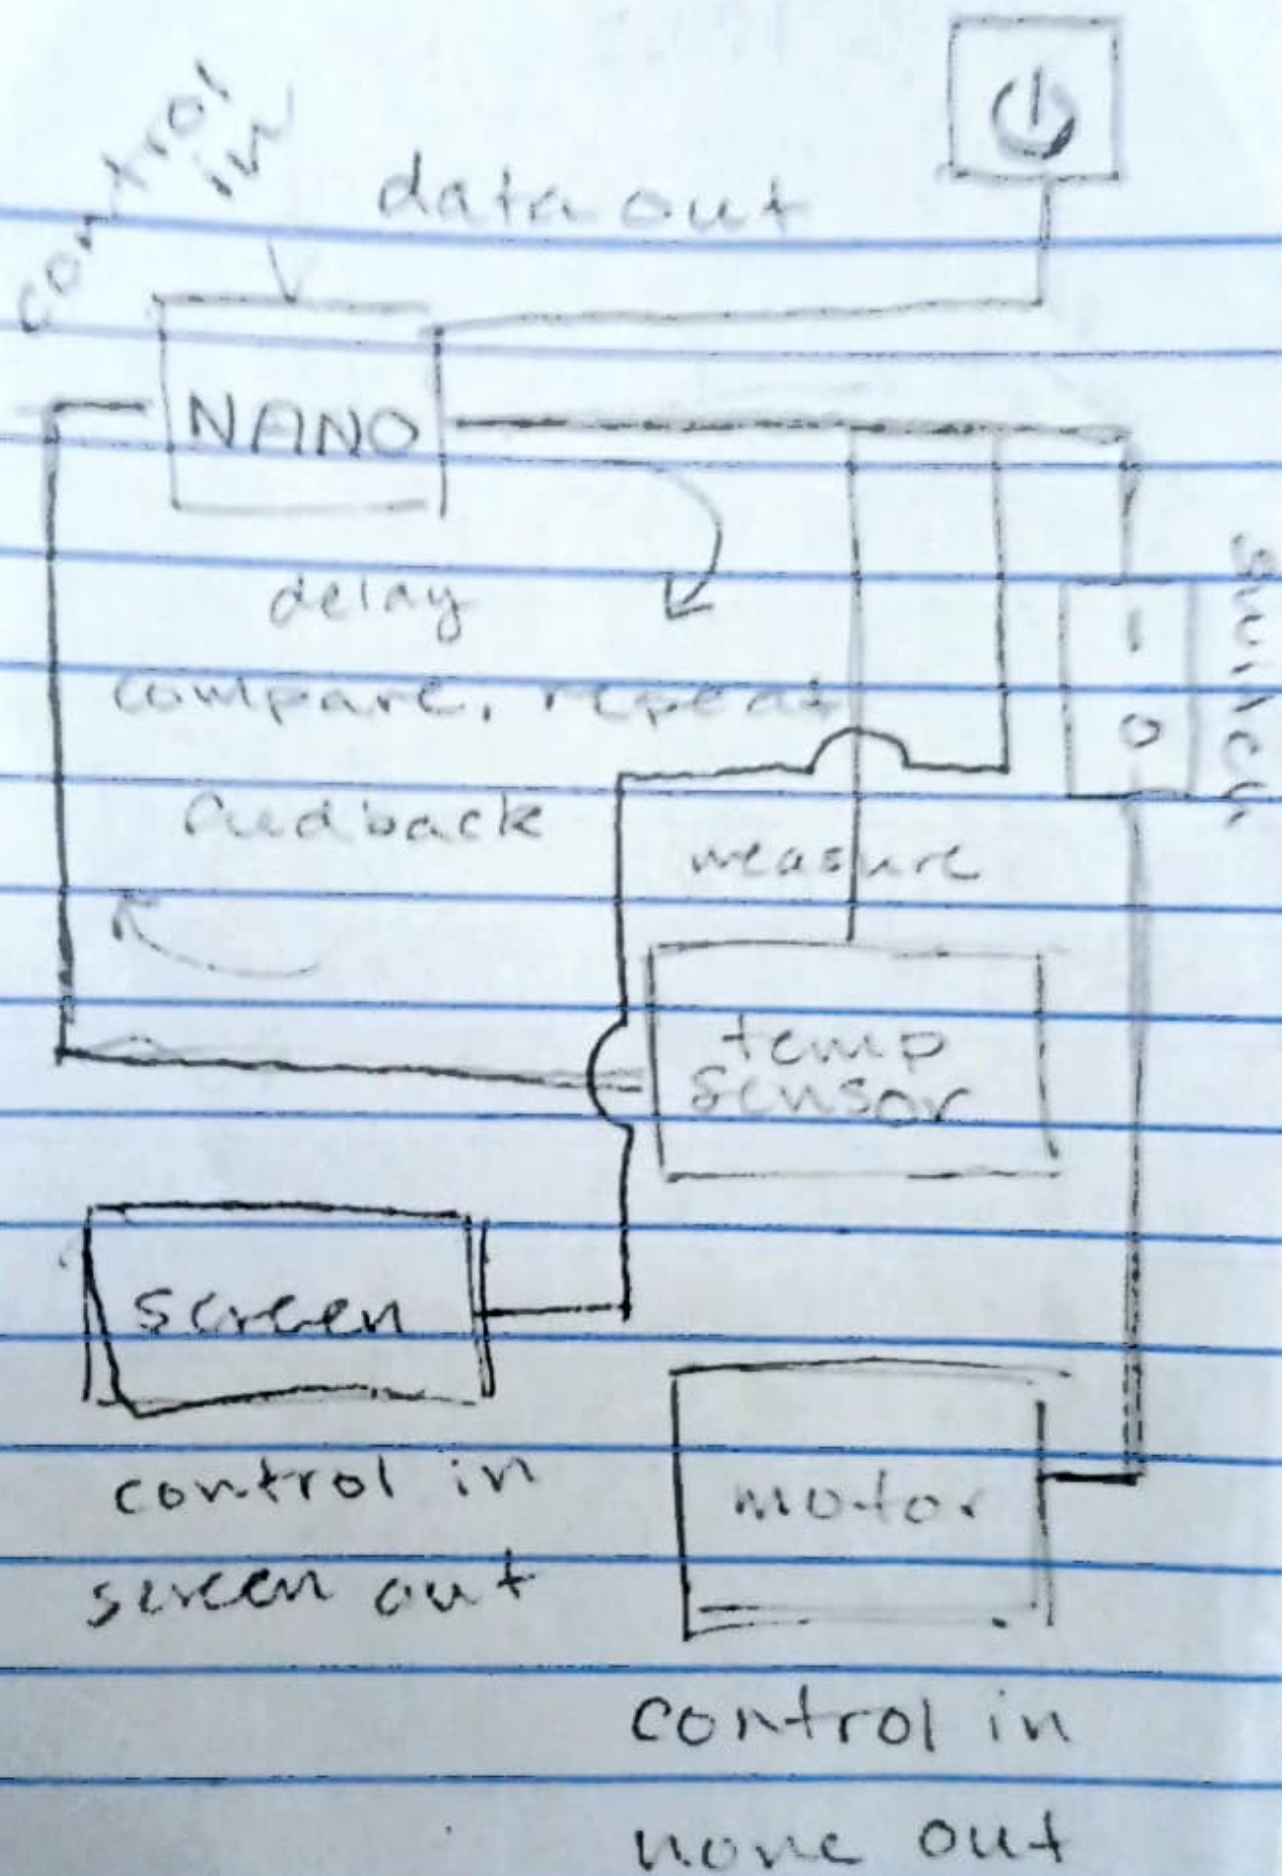 control
in
data out
NANO
delay
compare, repeat
feedback
measure
switch
1
0
temp
sensor
screen
control in
screen out
motor
control in
none out